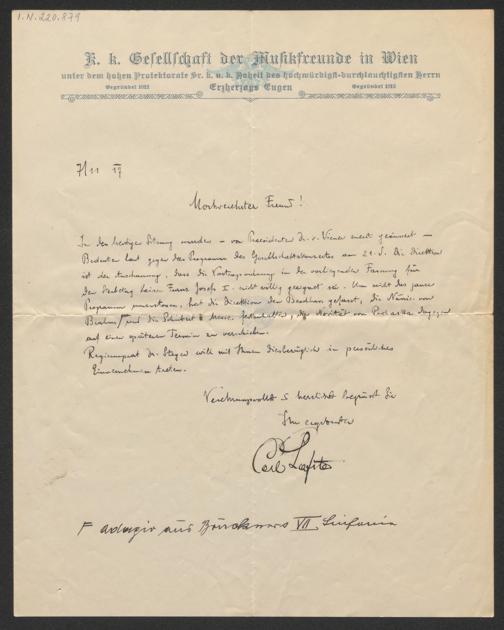 I.N. 220.879
K. k. Gesellschaft der Musikfreunde in Wien
unter dem hohen Protektorate Sr. k. u. k. Hoheit des hochwürdigst-durchlauchtigsten Herrn
Gegründet 1812 Erzherzogs Eugen Gegründet 1812
7/11 17
Hochverehrter Freund!
In der heutigen Sitzung wurden – von Praesidenten Dr. v. Wiener zuerst geäussert –
Bedenken laut gegen das Programm des Gesellschaftskonzertes am 21. d. Die Direktion
ist der Anschauung, dass die Vortragsordnung in der vorliegenden Fassung für
den Sterbetag Kaiser Franz Josefs I. nicht völlig geeignet sei. Um nicht das ganze
Programm umzustossen, hat die Direktion den Beschluss gefasst, die Nänie von
Brahms und die Schubert Messe festzuhalten, die Novität von Prohaska dagegen
auf einen späteren Termin zu verschieben.
Regierungsrat Dr. will mit Ihnen diesbezüglich in persönliches
Einvernehmen treten.
Verehrungsvollst & herzlichst begrüsst Sie
Ihr ergebenster
Carl Lafite
adagio aus Bruckners VII. Sinfonie